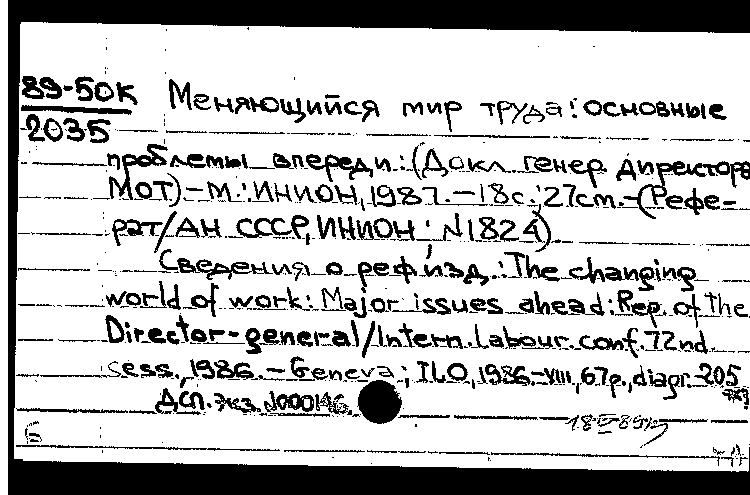 89-50К
2035
Меняющийся мир труда: основные
проблемы впереди.: (Докл генер. директора
МОТ)-М.: ИНИОН, 1987.-18с.; 27cm.-(Рефе-
рат/АН СССР, ИНИОН; N1824).
Сведения о реф.изд.: The changing
world of work: Major issues ahead: Rep. of the
Director-general/Intern.labour.conf. 72nd.
sess., 1986.-Geneva; ILO, 1986-VIII, 67p., diagr. 205
Дсп. Экз. N000146
Б